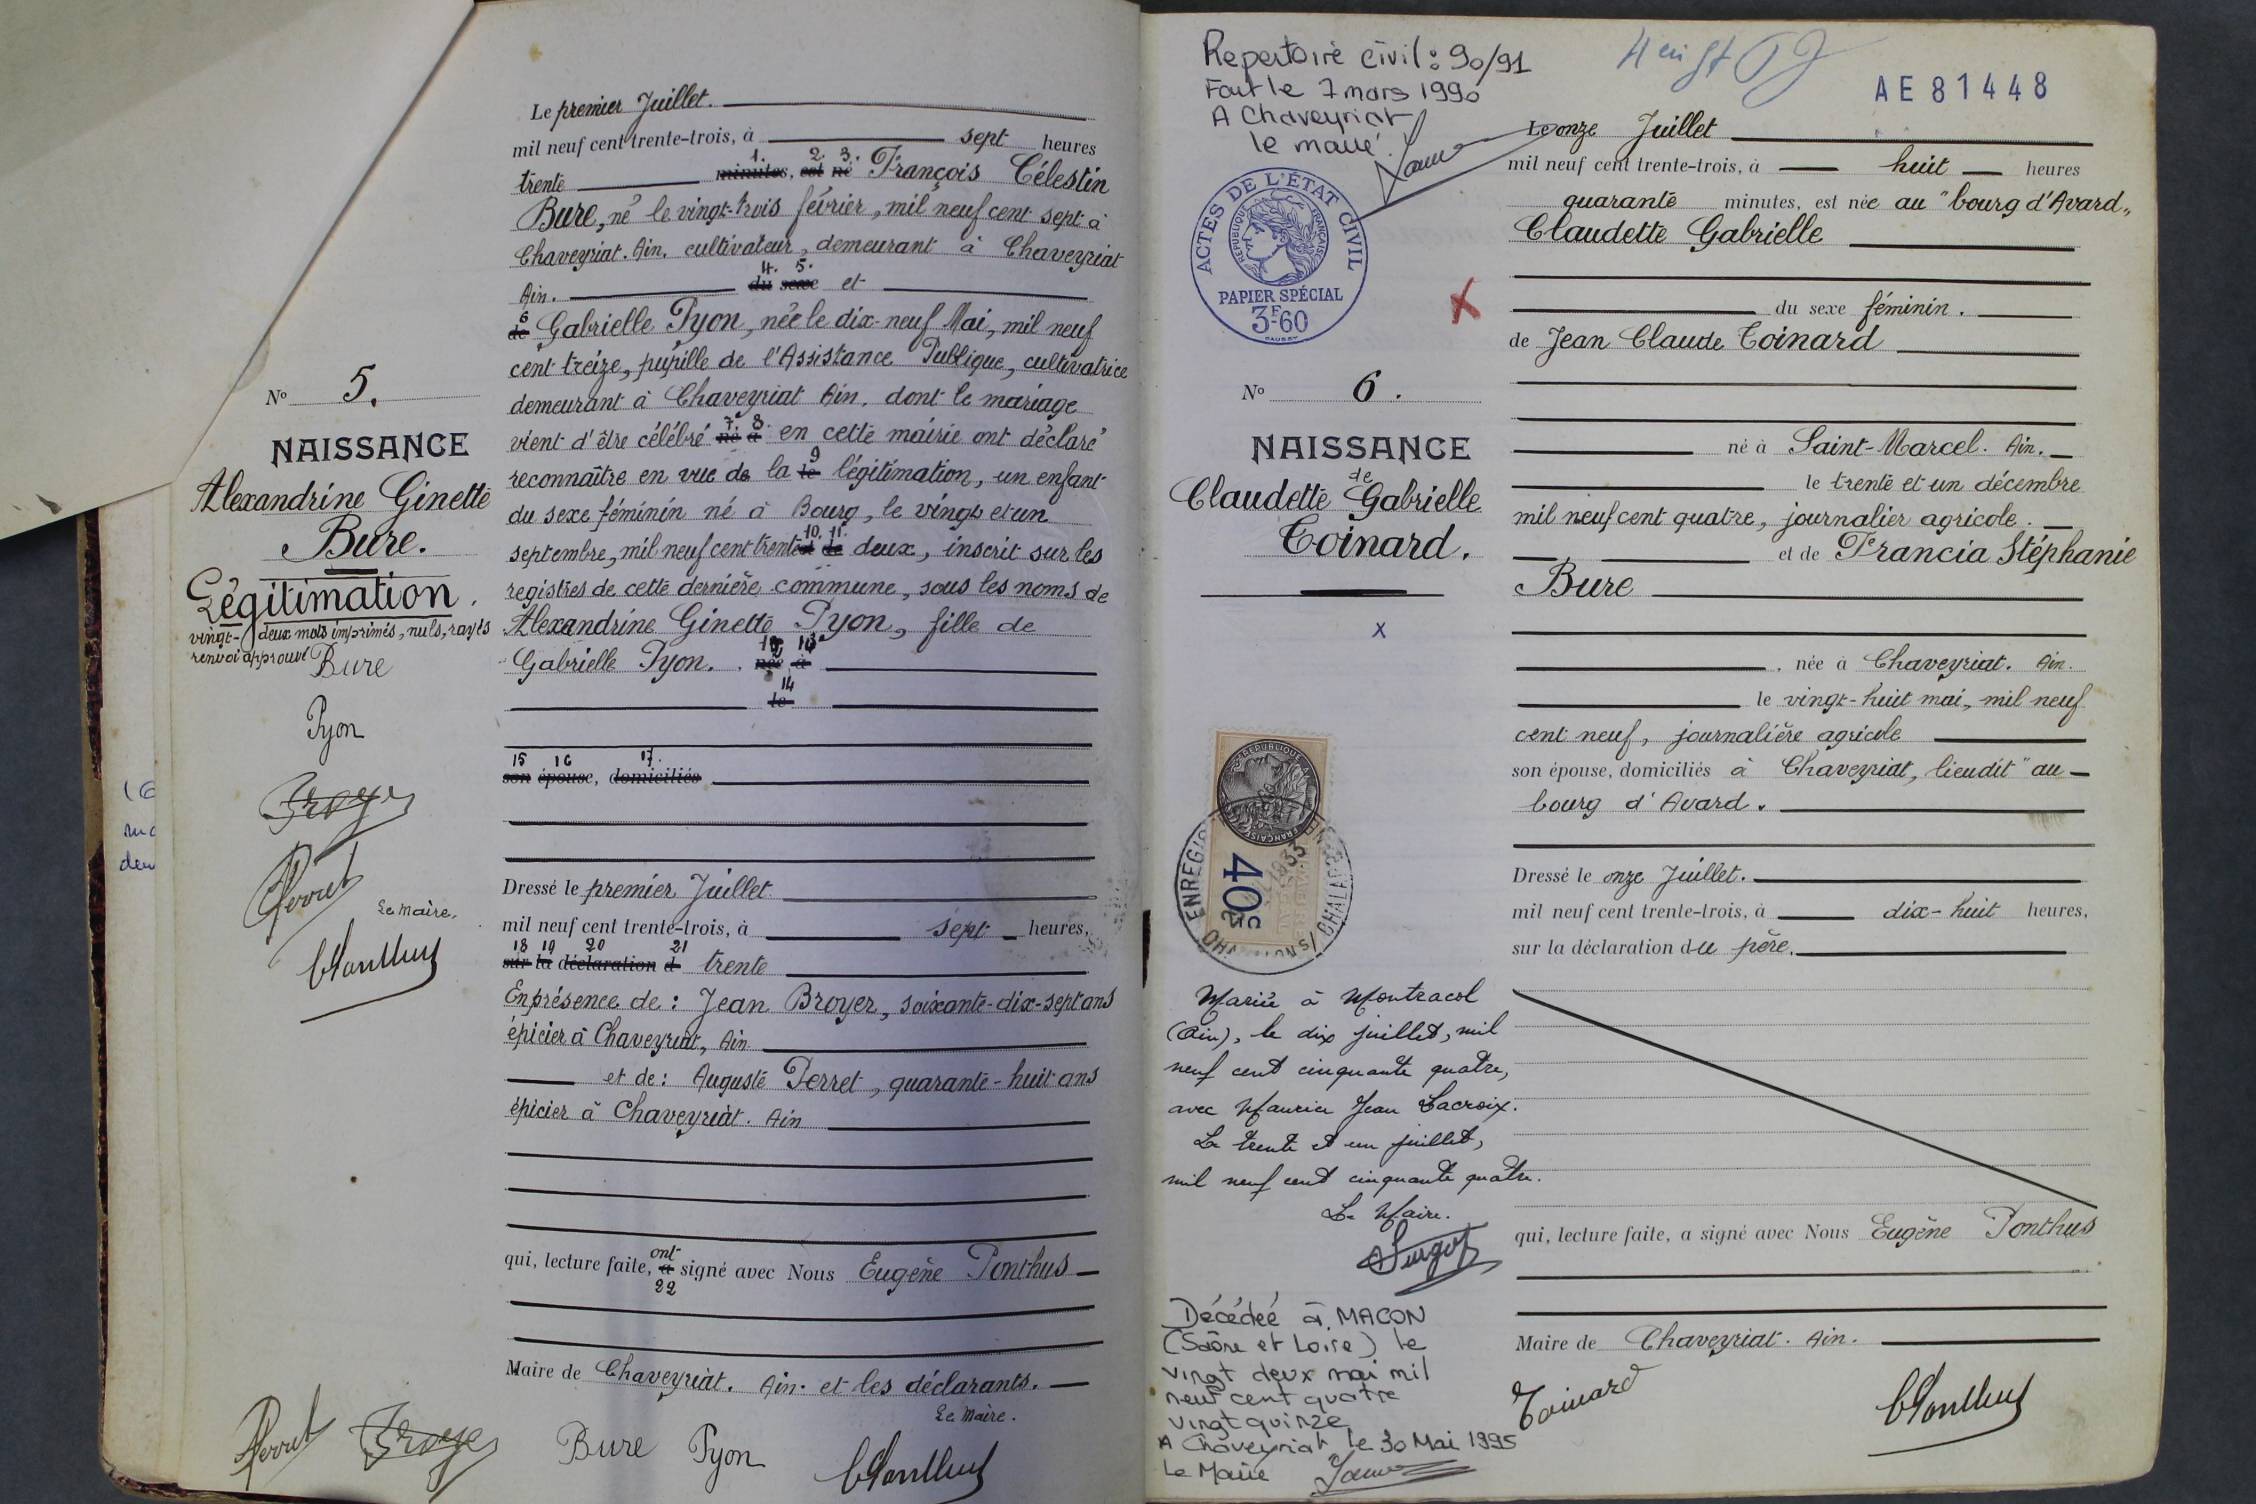 Le premier Juillet.
mil neuf cent trente-trois, à sept heures
1. 2. 3.
trente minutes, est né François Célestin
Bure, né le vingt-trois février, mil neuf cent sept à
Chaveyriat. Ain. cultivateur, demeurant à Chaveyriat
4. 5.
Ain. du sexe et
6
de Gabrielle Pyon, née le dix-neuf Mai, mil neuf
cent treize, pupille de l'Assistance Publique, cultivatrice
demeurant à Chaveyriat Ain. dont le mariage
7. 8.
vient d'être célébré né à en cette mairie ont déclaré
9
reconnaître en vue de la le légitimation, un enfant
du sexe féminin né à Bourg, le vingt et un
10. 11.
septembre, mil neuf cent trente et de deux, inscrit sur les
registres de cette dernière commune, sous les noms de
Alexandrine Ginette Pyon, fille de
12 13
Gabrielle Pyon. née à
14
le
15 16 17.
son épouse, domiciliés
Dressé le premier Juillet
mil neuf cent trente-trois, à sept heures,
18 19 20 21
sur la déclaration d trente
En présence de : Jean Broyer, soixante-dix-sept ans
épicier à Chaveyriat, Ain
et de : Auguste Perret, quarante-huit ans
épicier à Chaveyriat. Ain
ont
qui, lecture faite, a signé avec Nous Eugène Ponthus
22
Maire de Chaveyriat. Ain. et les déclarants.
Le Maire.
Perret Broyer Bure Pyon EPonthus
No 5.
NAISSANCE
Alexandrine Ginette
Bure.
Légitimation.
vingt-deux mots imprimés, nuls, rayés
renvoi approuvé Bure
Pyon
Broyer
Perret
Le Maire.
EPonthus
Repertoire civil : 90/91
Fait le 7 mars 1990
A Chaveyriat
le maire.
AE 81448
ACTES DE L'ÉTAT CIVIL
RÉPUBLIQUE FRANÇAISE
PAPIER SPÉCIAL
3F60
No 6.
NAISSANCE
de
Claudette Gabrielle
Toinard.
x
40c
Mariée à Montracol
(Ain), le dix juillet, mil
neuf cent cinquante quatre,
avec Maurice Jean Lacroix.
Le trente et un juillet,
mil neuf cent cinquante quatre.
Le Maire.
Décédée à MACON
(Saône et Loire) le
vingt deux mai mil
neuf cent quatre
vingt quinze
A Chaveyriat le 30 Mai 1995
Le Maire
Le onze Juillet
mil neuf cent trente-trois, à huit heures
quarante minutes, est née au "bourg d'Avard"
Claudette Gabrielle
du sexe féminin.
de Jean Claude Toinard
né à Saint-Marcel. Ain.
le trente et un décembre
mil neuf cent quatre, journalier agricole.
et de Francia Stéphanie
Bure
, née à Chaveyriat. Ain.
le vingt-huit mai, mil neuf
cent neuf, journalière agricole
son épouse, domiciliés à Chaveyriat, lieudit "au
bourg d'Avard.
Dressé le onze Juillet.
mil neuf cent trente-trois, à dix-huit heures,
sur la déclaration du père.
qui, lecture faite, a signé avec Nous Eugène Ponthus
Maire de Chaveyriat. Ain.
Toinard EPonthus